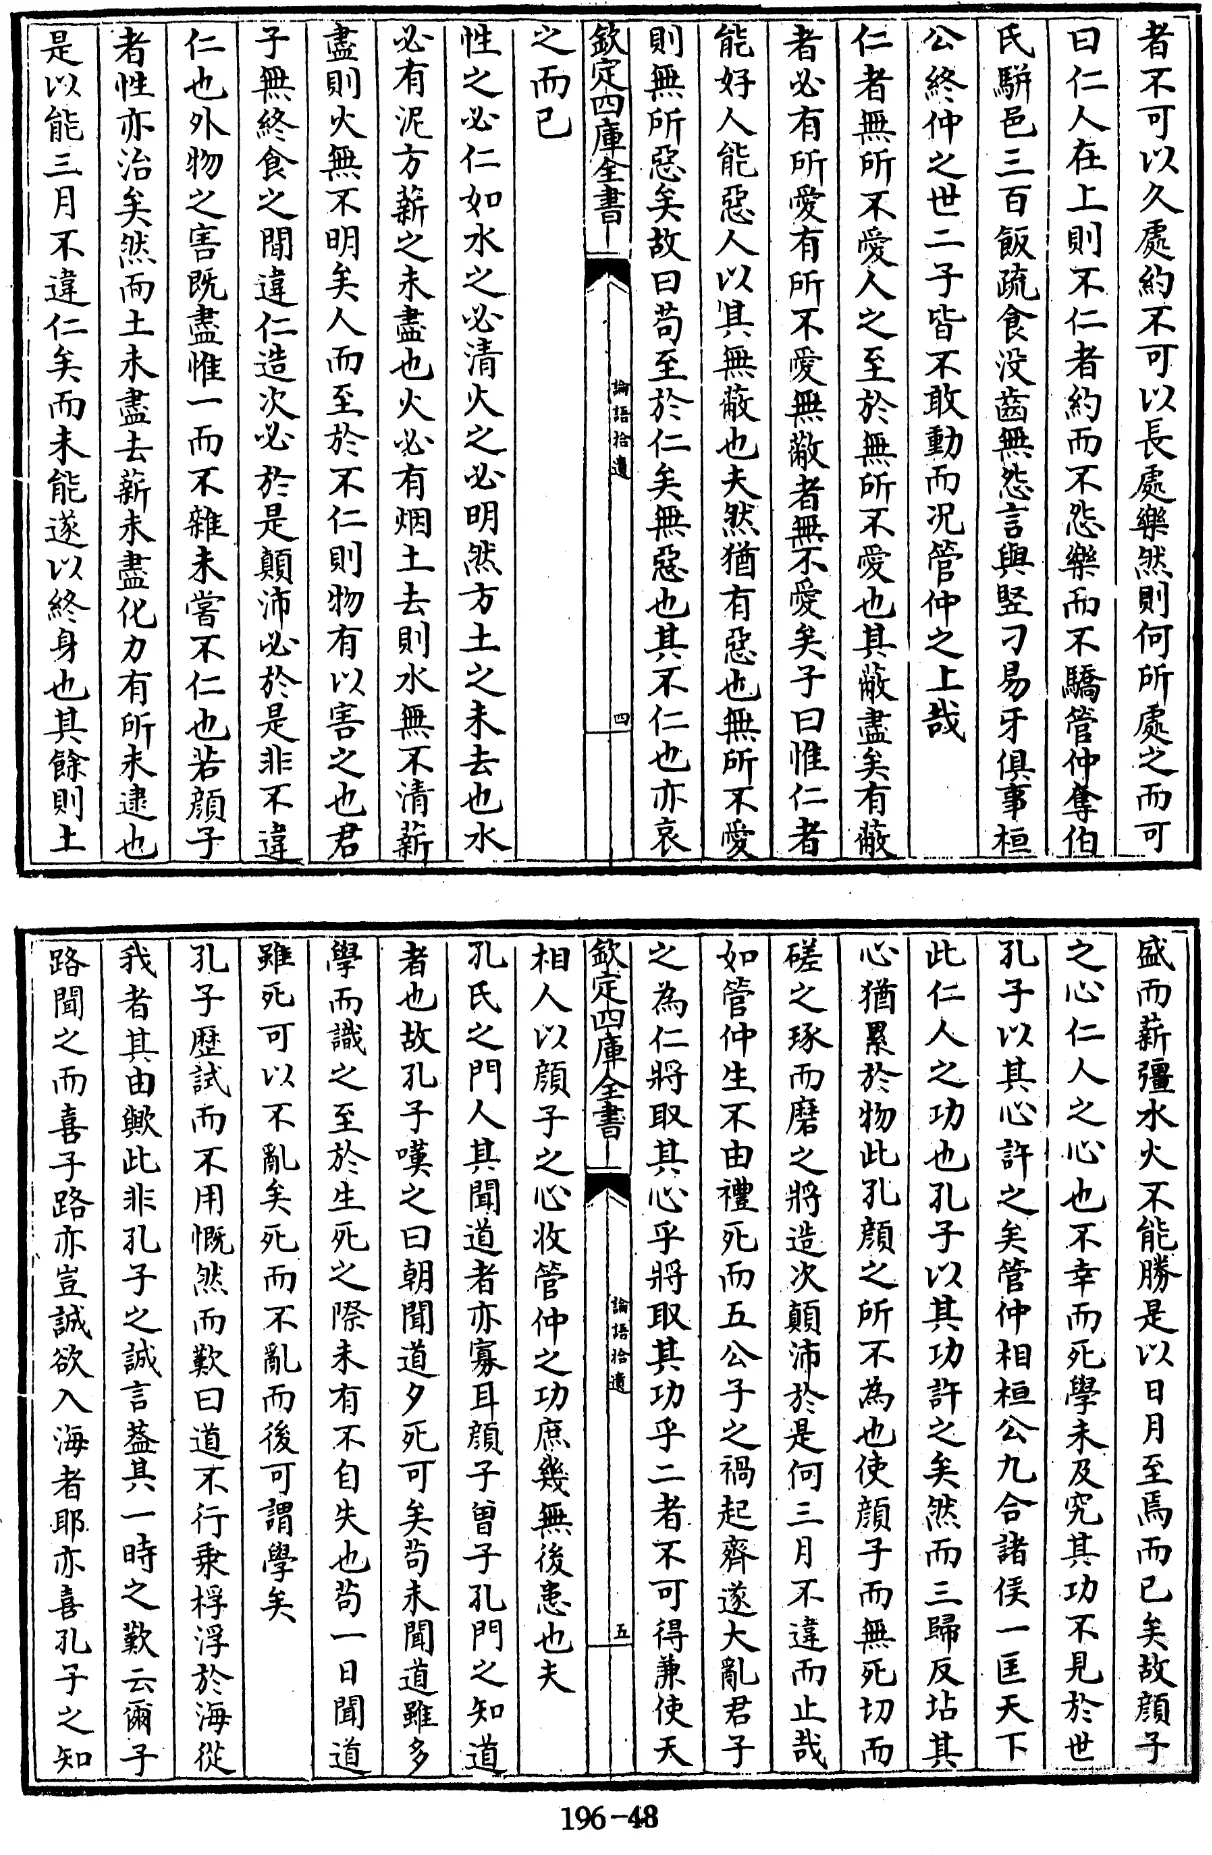 者不可以久處約不可以長處樂然則何所處之而可
曰仁人在上則不仁者約而不怨樂而不驕管仲奪伯
氏駢邑三百飯疏食没齒無怨言與竪刁易牙俱事桓
公終仲之世二子皆不敢動而况管仲之上哉
仁者無所不愛人之至於無所不愛也其蔽盡矣有蔽
者必有所愛有所不愛無蔽者無不愛矣子曰惟仁者
能好人能惡人以其無蔽也夫然猶有惡也無所不愛
則無所惡矣故曰苟至於仁矣無惡也其不仁也亦哀
欽定四庫全書
論語拾遺
四
之而已
性之必仁如水之必清火之必明然方土之未去也水
必有泥方薪之未盡也火必有烟土去則水無不清薪
盡則火無不明矣人而至於不仁則物有以害之也君
子無終食之間違仁造次必於是顛沛必於是非不違
仁也外物之害既盡惟一而不雜未嘗不仁也若顔子
者性亦治矣然而土未盡去薪未盡化力有所未逮也
是以能三月不違仁矣而未能遂以終身也其餘則土
盛而薪彊水火不能勝是以日月至焉而已矣故顔子
之心仁人之心也不幸而死學未及究其功不見於世
孔子以其心許之矣管仲相桓公九合諸侯一匡天下
此仁人之功也孔子以其功許之矣然而三歸反坫其
心猶累於物此孔顔之所不為也使顔子而無死切而
磋之琢而磨之將造次顛沛於是何三月不違而止哉
如管仲生不由禮死而五公子之禍起齊遂大亂君子
之為仁將取其心乎將取其功乎二者不可得兼使天
欽定四庫全書
論語拾遺
五
相人以顔子之心收管仲之功庶幾無後患也夫
孔氏之門人其聞道者亦寡耳顔子曾子孔門之知道
者也故孔子嘆之曰朝聞道夕死可矣苟未聞道雖多
學而識之至於生死之際未有不自失也苟一日聞道
雖死可以不亂矣死而不亂而後可謂學矣
孔子歴試而不用慨然而歎曰道不行乘桴浮於海從
我者其由歟此非孔子之誠言葢其一時之歎云爾子
路聞之而喜子路亦豈誠欲入海者耶亦喜孔子之知
196-48